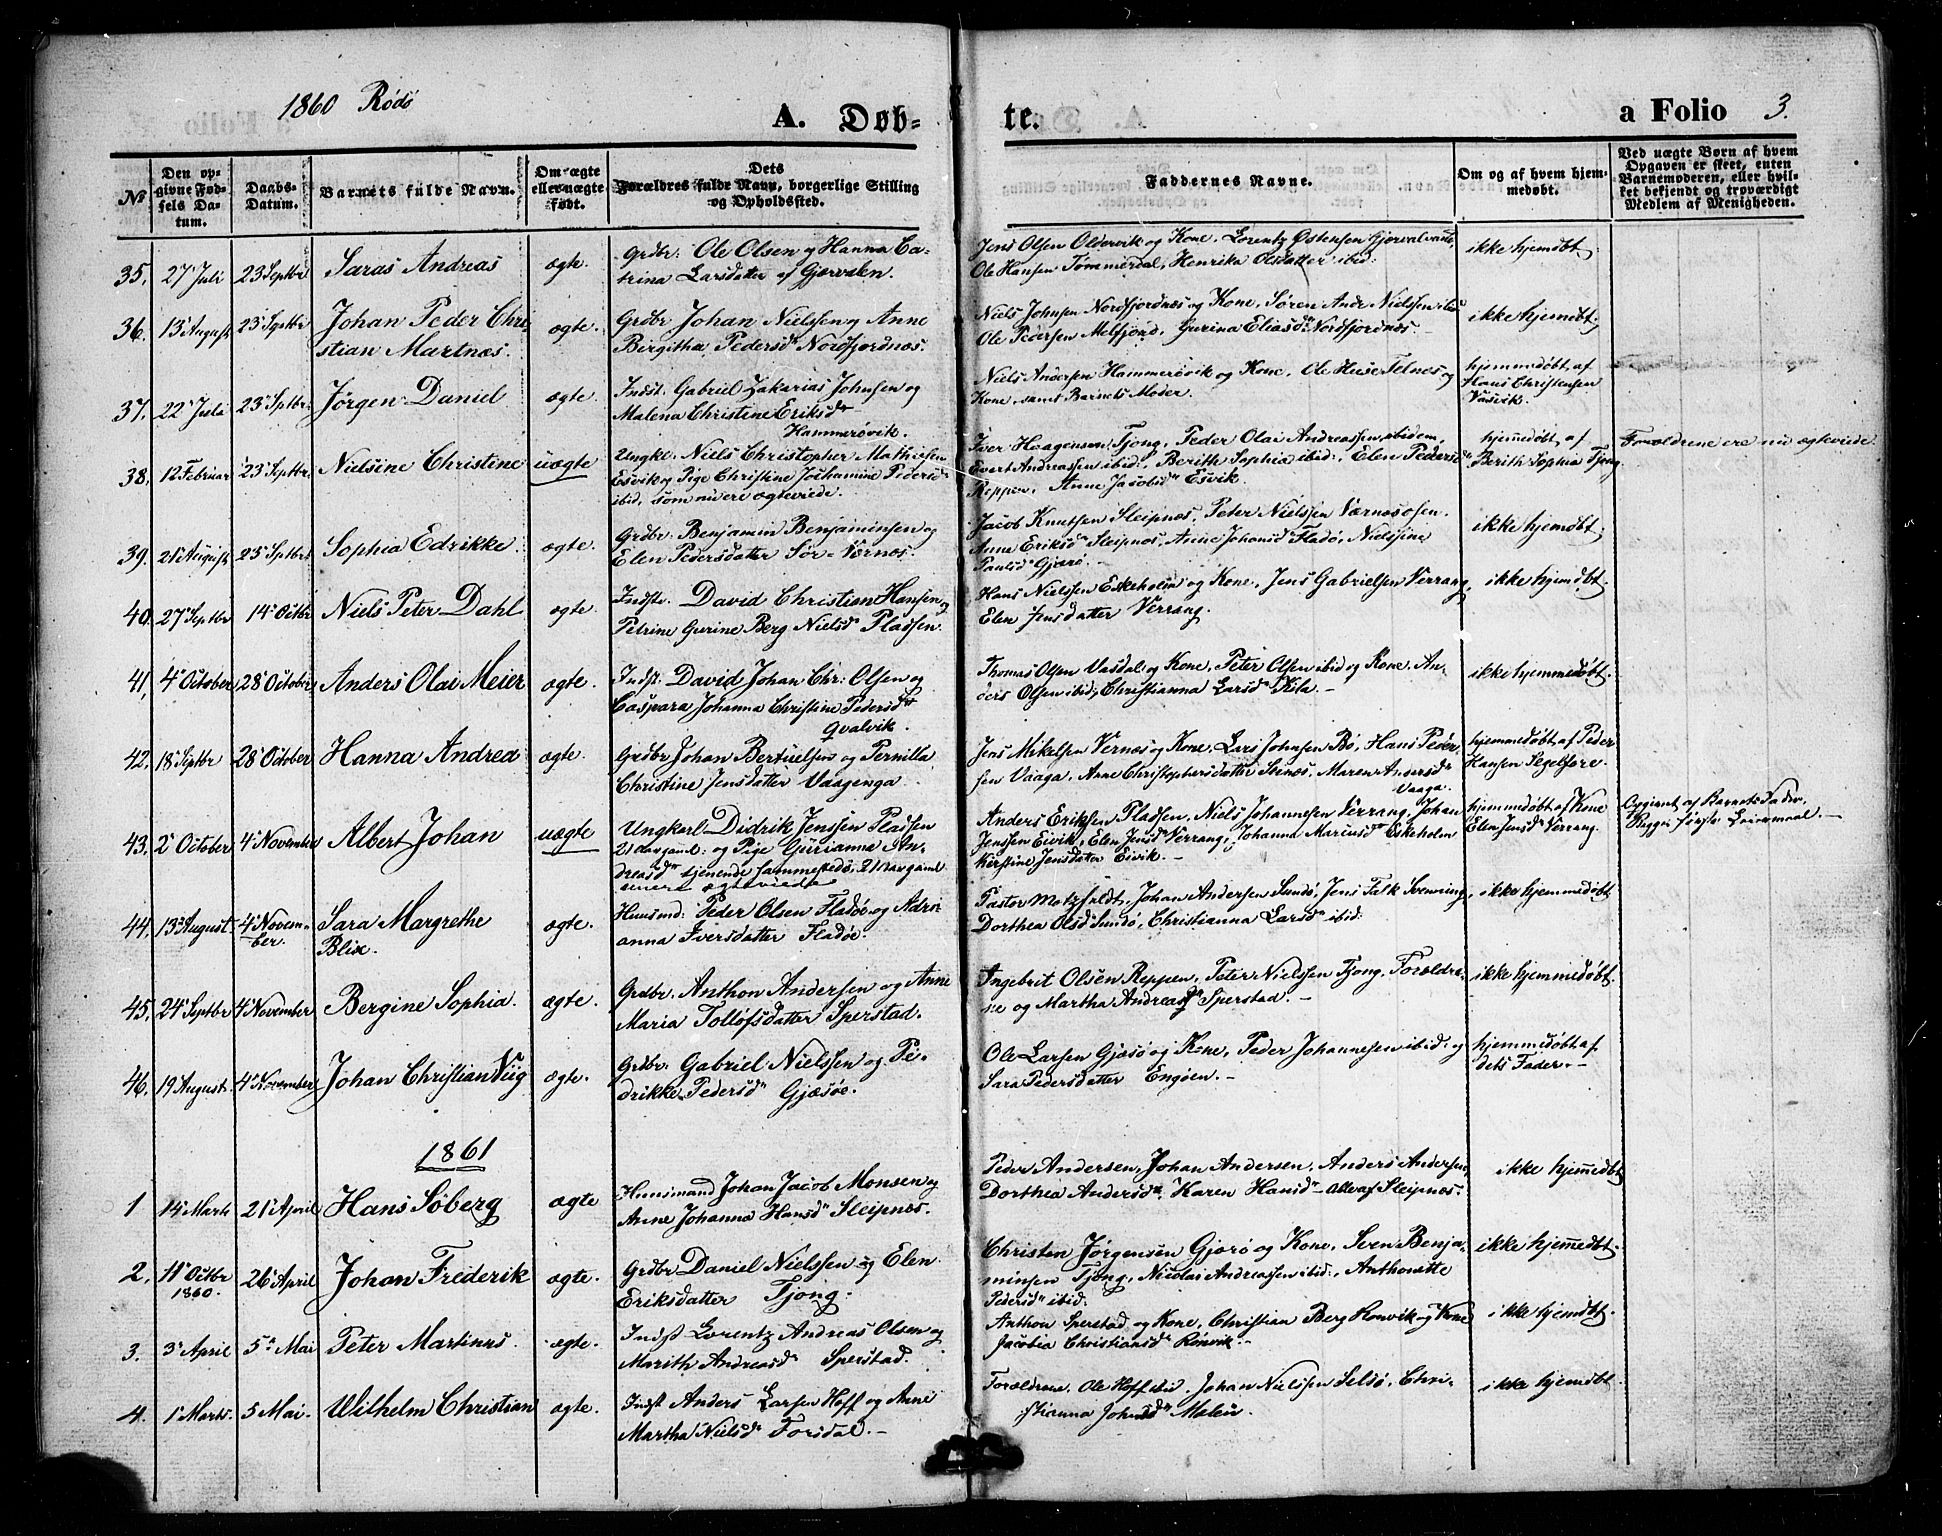 1860 Rödö
A. Døb-
te.
a Folio 3.
No
Den op-
givne Fød-
sels Da-
tum.
Daabs-
Datum.
Barnets fulde Navn.
Om ægte
eller uægte
født.
Dets
Forældres fulde Navn, borgerlige Stilling
og Opholdssted.
Faddernes Navne.
Om og af hvem hjem-
medøbt.
Ved uægte Børn af hvem
Opgaven er skeet, enten
Barnemoderen, eller hvil-
ket bekjendt og troværdigt
Medlem af Menigheden.
35. 27 Juli 23 Septbr Saras Andreas ægte. Grdbr. Ole Olsen og Hanna Ca-
trina Larsdatter af Gjervalen.
Jens Olsen Oldervik og Kone, Lorentz Østensen
Ole Hansen Tømmerdal, Henrika Olsdatter ibid:
ikke hjemdøbt.
36. 13 August 23 Septbr Johan Peder Chri
stian Martnæs. ægte. Grdbr Johan Nielssen og Anne
Birgitha Pedersdr Nordfjordnæs.
Niels Johnsen Nordfjordnæs og Kone, Søren Andr Nielssen ibid
Ole Pedersen Melfjord, Gurina Eliasdr Nordfjordnæs. –
ikke hjemdøbt.
37. 22 Juli 23 Sptbr. Jørgen Daniel ægte. Indst. Gabriel Zakarias Johnsen og
Malena Christine Eriksdr
Hammerøvik.
Niels Andersen Hammerøvik og Kone, Ole Huse Telnæs og
Kone, samt Barnets Moder.
hjemmedøbt af
Hans Christensen
Vasvik.
38. 12 Februar 23 Septbr. Nielsine Christine uægte Ungkl. Niels Christopher Mathiesen
Esvik og Pige Christine Johannine Pedersd
ibid, som nu ere ægteviede.
Iver Haagensen Tjong, Peder Olai Andreassen, ibidem,
Evert Andreassen ibid, Berith Sophia ibid: Elen Pedersdr
Reppen, Anne Jacobsdr Esvik.
hjemmedøbt af
Berith Sophia Tjong
Forældrene ere nu ægteviede.
39. 21 August 23 Septbr Sophia Edrikke. ægte. Grdbr. Benjamin Benjaminsen og
Elen Pedersdatter Sør-Værnes.
Jacob Knutsen Sleipnæs, Peter Nielssen Værnæsosen.
Anne Eriksdr Sleipnæs, Anne Johansd Fladø, Nielsine
Paulsdr Gjærø.
ikke hjemdøbt.
40. 27 Septbr 14 Octbr Niels Peter Dahl ægte. Indste. David Christian Hansen og
Petrine Gurine Berg Nielsdr Pladsen.
Hans Nielssen Eskeholm og Kone, Jens Gabrielsen Verrang
Elen Jensdatter Verrang.
ikke hjemdøbt.
41. 4 October 28 October Anders Olai Meier ægte. Indst. David Johan Chr. Olsen og
Caspara Johanna Christine Pedersdr
Qvalvik.
Thomas Olsen Vasdal og Kone, Peter Olsen ibid og Kone, An-
ders Olsen ibid, Christianna Larsdr Kila. –
ikke hjemmedøbt.
42. 18 Septbr 28 October Hanna Andrea ægte. Grdbr Johan Bertuelsen og Pernilla
Christine Jensdatter Vaagenga.
Jens Mikelsen Vernæs og Kone, Lars Johnsen Bø, Hans Peder-
sen Vaaga, Anne Christophersdatter Selnæs, Maren Andersdr
Vaaga.
hjemmedøbt af Peder
Hansen Segelfore.
43. 2 October 4 November Albert Johan uægte Ungkarl Didrik Jenssen Pladsen
21 aar gaml: og Pige Gurianna An-
dreasdr tjenende sammesteds, 21 aar gaml
senere ægteviede
Anders Eriksen Pladsen, Niels Johannesen Verrang, Johan
Jenssen Eivik, Elen Jensdr Verrang, Johanna Mariusdr Eskeholm
Kerstine Jensdater Eivik. –
hjemmedøbt af Kone
Elen Jensdr Verrang.
Opgivet af Barnets Fader.
Begges første Leiermaal. –
44. 13 August 4 Novem-
ber. Sara Margrethe
Blix. ægte. Huusmd: Peder Olsen Fladøe og Adri
anna Iversdatter Fladøe.
Pastor Motzfeldt, Johan Andersen Sundö, Jens Falk Svenning,
Dorthea Olsd Sundö, Christianna Larsdr ibid:
ikke hjemmedøbt
45. 24 Septbr 4 November Bergine Sophia. ægte. Grdbr. Anthon Andersen og Anne
Maria Tollofsdatter Sperstad.
Ingebrit Olsen Reppen, Peter Nielssen Tjong, Forældre-
ne og Martha Andreasdr Sperstad. –
ikke hjemmedøbt.
46. 19 August. 4 November Johan Christian Viig ægte. Grdbr. Gabriel Nielssen og Pe-
drikke Pedersdr Gjæsøe.
Ole Larsen Gjæsø og Kone, Peder Johannesen ibid: og
Sara Pedersdatter Engøen. –
hjemmedøbt af
dets Fader. –
1861
1 14 Marts 21 April Hans Söberg ægte Huusmand Johan Jacob Monsen og
Anne Johanna Hansdr Sleipnæs.
Peder Andersen, Johan Andersen, Anders Andersen,
Dorthea Andersdr Karen Hansdr – Alle af Sleipnæs.
ikke hjemedøbt
2. 11 Octbr
1860. 26 April Johan Frederik ægte. Grdbr Daniel Nielssen og Elen
Eriksdatter Tjong.
Christen Jørgensen Gjærø og Kone, Sven Benja-
minsen Tjong, Nicolai Andreassen ibid., Anthonette
Pedersdr ibid:
ikke hjemedøbt.
3. 3 April 5 Mai Peter Martinus. ægte. Indst Lorentz Andreas Olsen og
Marith Andreasdr Sperstad.
Anthon Sperstad og Kone, Christian Berg og Kone
Jacobia Christiansdr Rönvik. –
ikke hjemdøbt.
4. 1 Marts. 5 Mai. Wilhelm Christian ægte. Indst Anders Larsen Hoff og Ane
Martha Nielsdr Forsdal. –
Forældrene, Ole Hoff ibid. Johan Nielssen Selsö, Chri-
stianna Johnsdr
ikke hjemdøbt.